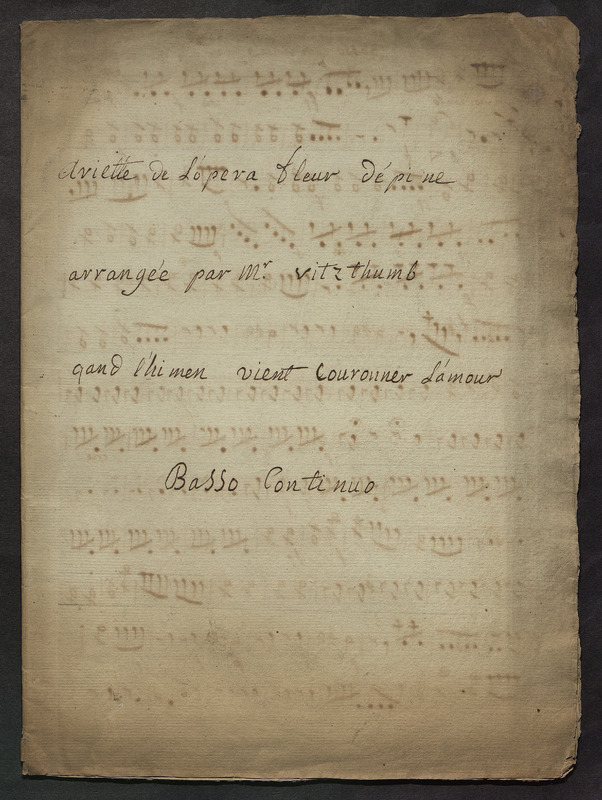 Ariette de L'opera fleur dépine
arrangée par Mr vitzthumb
qand l'himen vient Couronner L'amour
Basso Continuo